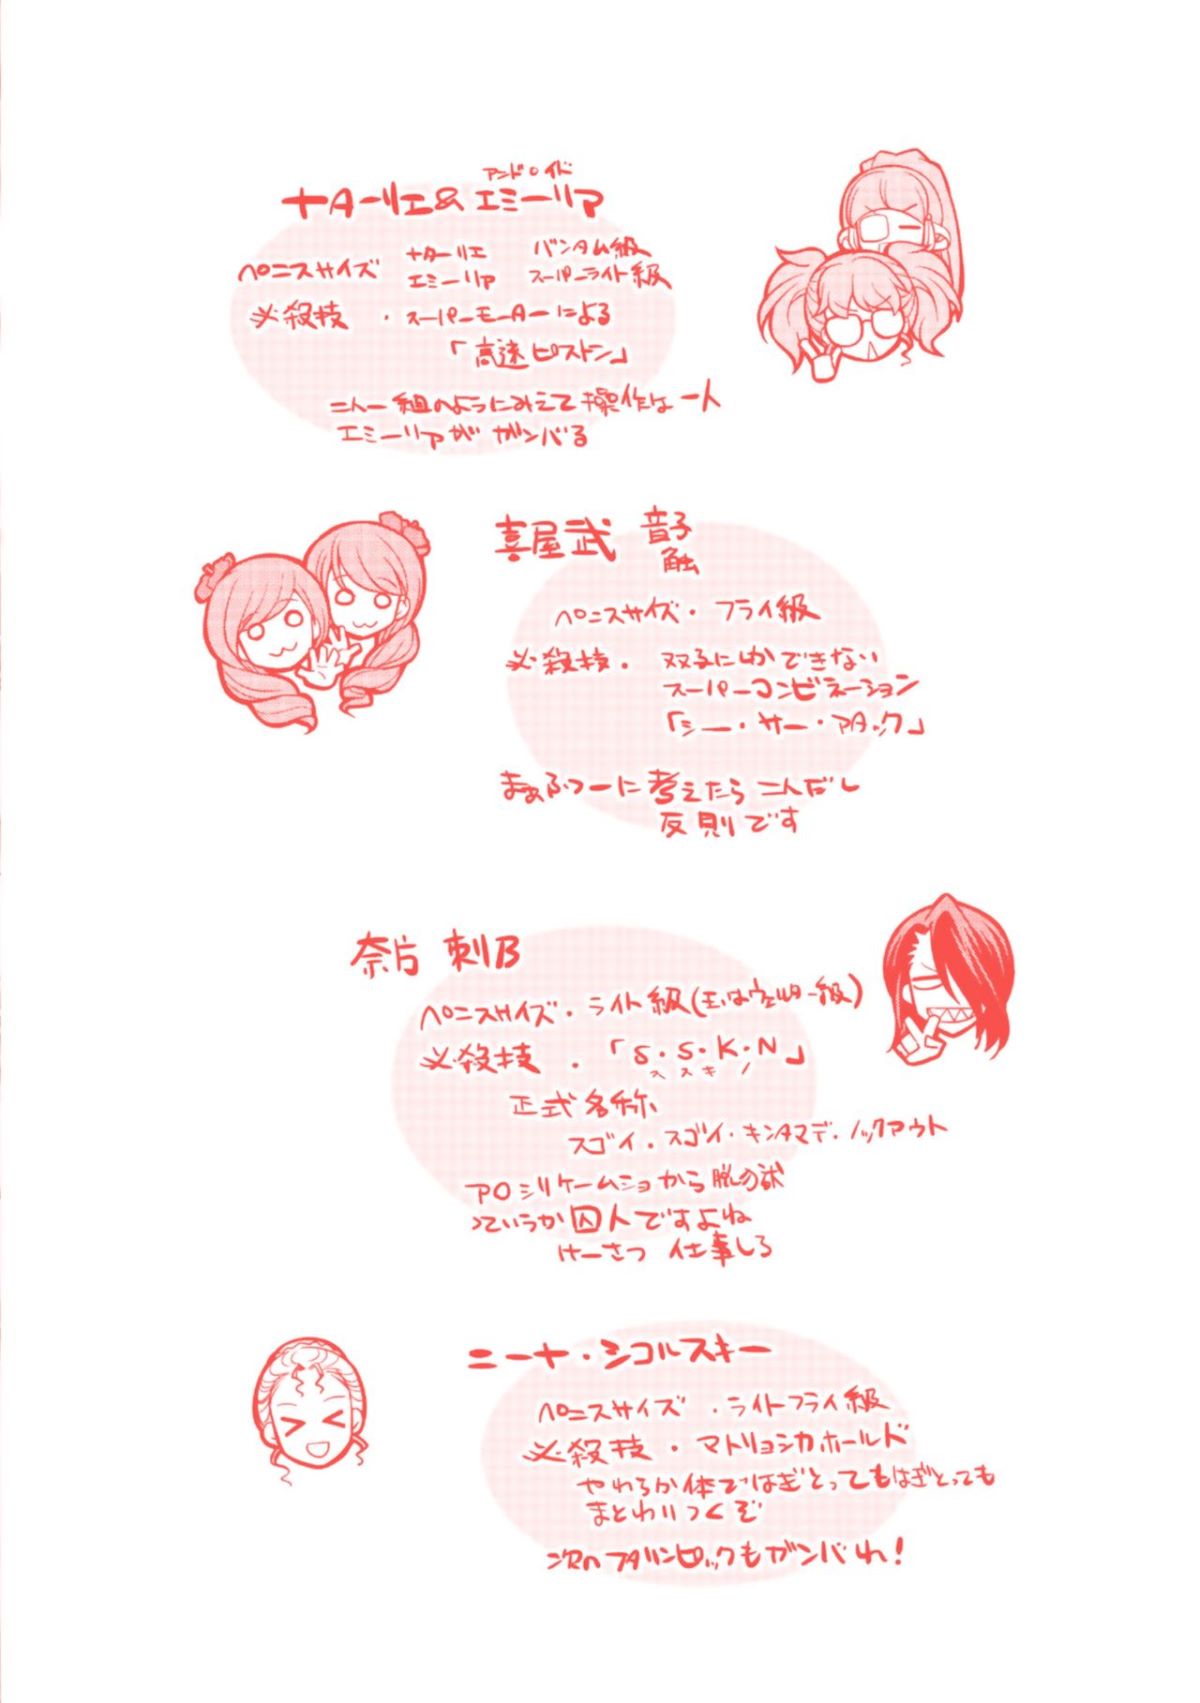 アンド・イド
ナターリエ&エミーリア
ペニスサイズ ナターリエ バンタム級
エミーリア スーパーライト級
必殺技 ・スーパーモーターによる
「高速ピストン」
二人一組のようにみえて操作は一人
エミーリアがガンバる
喜屋武 音子
触
ペニスサイズ・フライ級
必殺技・双子にしかできない
スーパーコンビネーション
「シー・サー・アタック」
まぁふつーに考えたら二人だし
反則です
奈片 刺B
ペニスサイズ・ライト級(玉はウェルター級)
必殺技・「S・S・K・N」
ススキノ
正式名称
スゴイ・スゴイ・キンタマデ・ノックアウト
アロシリケームショから脱獄
っていうか囚人ですよね
けーさつ 仕事しろ
ニーナ・シコルスキー
ペニスサイズ・ライトフライ級
必殺技・マトリョシカホールド
やわらか体ではぎとってもはぎとっても
まとわりつくぞ
次のフタリンピックもガンバれ!